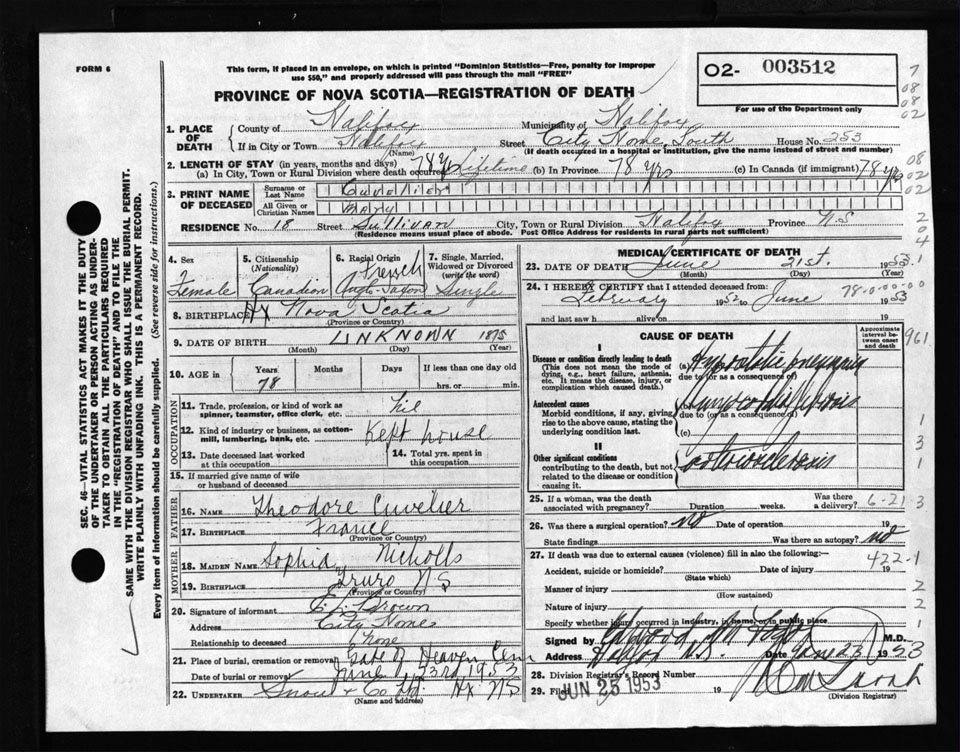 FORM 6
This form, if placed in an envelope, on which is printed "Dominion Statistics—Free, penalty for improper
use $50," and properly addressed will pass through the mail "FREE"
PROVINCE OF NOVA SCOTIA—REGISTRATION OF DEATH
02- 003512
For use of the Department only
7
08
08
02
SEC. 46—VITAL STATISTICS ACT MAKES IT THE DUTY
OF THE UNDERTAKER OR PERSON ACTING AS UNDER-
TAKER TO OBTAIN ALL THE PARTICULARS REQUIRED
IN THE "REGISTRATION OF DEATH" AND TO FILE THE
SAME WITH THE DIVISION REGISTRAR WHO SHALL ISSUE THE BURIAL PERMIT.
WRITE PLAINLY WITH UNFADING INK. THIS IS A PERMANENT RECORD.
Every item of information should be carefully supplied. (See reverse side for instructions.)
1. PLACE OF DEATH
County of Halifax Municipality of Halifax
If in City or Town Halifax (Name) Street City Home, South House No. 253
(If death occurred in a hospital or institution, give the name instead of street and number)
2. LENGTH OF STAY (in years, months and days)
(a) In City, Town or Rural Division where death occurred 78 yrs Lifetime (b) In Province 78 yrs (c) In Canada (if immigrant) 78 yrs
08
02
02
3. PRINT NAME OF DECEASED
Surname or Last Name Cuvelier
All Given or Christian Names Mary
RESIDENCE No. 18 Street Sullivan City, Town or Rural Division Halifax Province N.S
(Residence means usual place of abode. Post Office Address for residents in rural parts not sufficient)
2
0
4
4. Sex Female
5. Citizenship (Nationality) Canadian
6. Racial Origin French Anglo-Saxon
7. Single, Married, Widowed or Divorced (write the word) Single
8. BIRTHPLACE Hx Nova Scotia
(Province or Country)
9. DATE OF BIRTH UNKNOWN 1875
(Month) (Day) (Year)
10. AGE in Years 78 Months Days If less than one day old hrs. or min.
OCCUPATION
11. Trade, profession, or kind of work as spinner, teamster, office clerk, etc. Nil
12. Kind of industry or business, as cotton-mill, lumbering, bank, etc. Kept house
13. Date deceased last worked at this occupation
14. Total yrs. spent in this occupation
15. If married give name of wife or husband of deceased
FATHER
16. NAME Theodore Cuvelier
17. BIRTHPLACE France
(Province or Country)
MOTHER
18. MAIDEN NAME Sophia Nicholls
19. BIRTHPLACE Truro N-S
(Province or Country)
20. Signature of informant Brown
Address City Home
Relationship to deceased None
21. Place of burial, cremation or removal Gate of Heaven Cem
Date of burial or removal June 23rd, 1953
22. UNDERTAKER Snow & Co Ltd. Hx NS
(Name and address)
MEDICAL CERTIFICATE OF DEATH
23. DATE OF DEATH June 21st. 1953
(Month) (Day) (Year)
24. I HEREBY CERTIFY that I attended deceased from:
February 1952 to June 1953
78-0-00-00
and last saw h alive on 19
CAUSE OF DEATH
Approximate interval between onset and death
961
I
Disease or condition directly leading to death
(This does not mean the mode of dying, e.g., heart failure, asthenia, etc. It means the disease, injury, or complication which caused death.)
(a) Hypostatic pneumonia
due to (or as a consequence of)
Antecedent causes
Morbid conditions, if any, giving rise to the above cause, stating the underlying condition last.
due to (or as a consequence of)
(c)
II
Other significant conditions
contributing to the death, but not related to the disease or condition causing it.
1
3
1
25. If a woman, was the death associated with pregnancy? Duration weeks. Was there a delivery? 6-21 3
26. Was there a surgical operation? no Date of operation 19
State findings Was there an autopsy? no
27. If death was due to external causes (violence) fill in also the following:—
422-1
Accident, suicide or homicide? Date of injury 19
(State which)
Manner of injury 2
(How sustained)
Nature of injury 2
Specify whether injury occurred in industry, in home, or in public place 1
Signed by M.D.
Address Halifax N.S. Date June 23 1953
28. Division Registrar's Record No.
29. Filed JUN 25 1953 19
(Division Registrar)